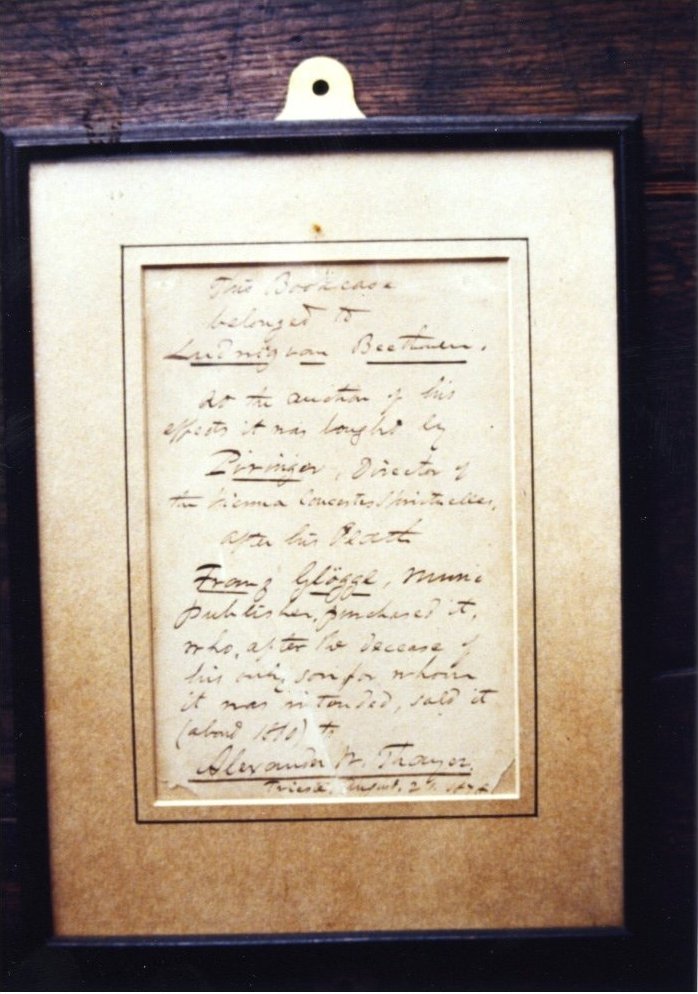 This Bookcase
belonged to
Ludwig van Beethoven.
At the auction of his
effects it was bought by
Piringer, Director of
the Vienna Concerts Spirituelles,
after his Death
Franz Glöggl, Music
publisher, purchased it,
who, after the decease of
his only son for whom
it was intended, sold it
(about 1860) to
Alexander W. Thayer.
Trieste, August, 187